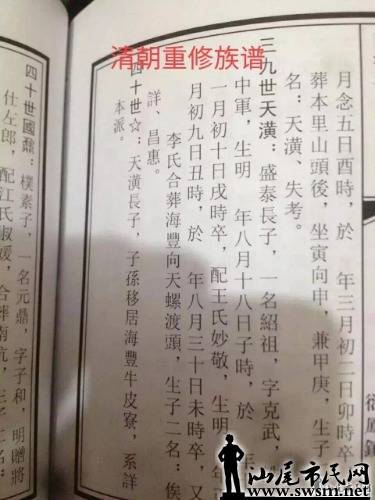 清朝重修族谱
月念五日酉時，於 年三月初二日卯時卒
葬本里山頭後，坐寅向申，兼甲庚，生子
名：天潢、失考。
三九世天潢：盛泰長子，一名紹祖，字克武，
中軍，生明 年八月十八日子時，於 年
一月初十日戌時卒，配王氏妙敬，生明
月初九日丑時，於 年八月三十日未時卒，又
李氏合葬海豐向天螺渡頭，生子二名：俟
詳、昌惠。
四十世☆：天潢長子，子孫移居海豐牛皮寮，系詳
本派。
四十世國鼐：樸素子，一名元鼎，字子和，明贈將
仕左郎，配江氏淑媛，合葬南坑，生子二名：
汕尾市民网
www.swsm.net